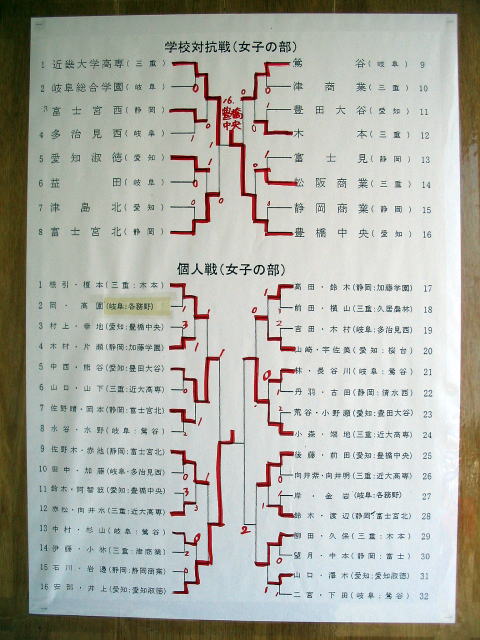 学校対抗戦(女子の部)
1 近畿大学高専(三重)
2 岐阜総合学園(岐阜)
3 富士宮西(静岡)
4 多治見西(岐阜)
5 愛知淑徳(愛知)
6 益田(岐阜)
7 津島北(愛知)
8 富士宮北(静岡)
16.
豊橋
中央
鶯谷(岐阜) 9
津商業(三重) 10
豊田大谷(愛知) 11
木本(三重) 12
富士見(静岡) 13
松阪商業(三重) 14
静岡商業(静岡) 15
豊橋中央(愛知) 16
個人戦(女子の部)
1 根引・榎本(三重:木本)
2 岡・高園(岐阜:各務野)
3 村上・幸地(愛知:豊橋中央)
4 木村・片瀬(静岡:加藤学園)
5 中西・熊谷(愛知:豊田大谷)
6 山口・山下(三重:近大高専)
7 佐野晴・岡本(静岡:富士宮北)
8 水谷・水野(岐阜:鶯谷)
9 佐野木・赤池(静岡:富士宮北)
10 田中・加藤(岐阜:多治見西)
11 鈴木・阿智波(愛知:豊橋中央)
12 赤松・向井水(三重:近大高専)
13 中村・杉山(岐阜:鶯谷)
14 伊藤・小林(三重:津商業)
15 石川・岩邊(静岡:静岡商業)
16 安部・井上(愛知:愛知淑徳)
高田・鈴木(静岡:加藤学園) 17
前田・横山(三重:久居農林) 18
吉田・木村(岐阜:多治見西) 19
山崎・宇佐美(愛知:桜台) 20
林・長谷川(岐阜:鶯谷) 21
丹羽・古田(静岡:清水西) 22
荒谷・小野瀬(愛知:豊田大谷) 23
小森・端地(三重:近大高専) 24
後藤・前田(愛知:豊橋中央) 25
向井紫・向井明(三重:近大高専) 26
岸・金岩(岐阜:各務野) 27
鈴木・渡辺(静岡:富士宮北) 28
御田・久保(三重:木本) 29
望月・中本(静岡:富士) 30
山口・澤木(愛知:愛知淑徳) 31
二宮・下田(岐阜:鶯谷) 32